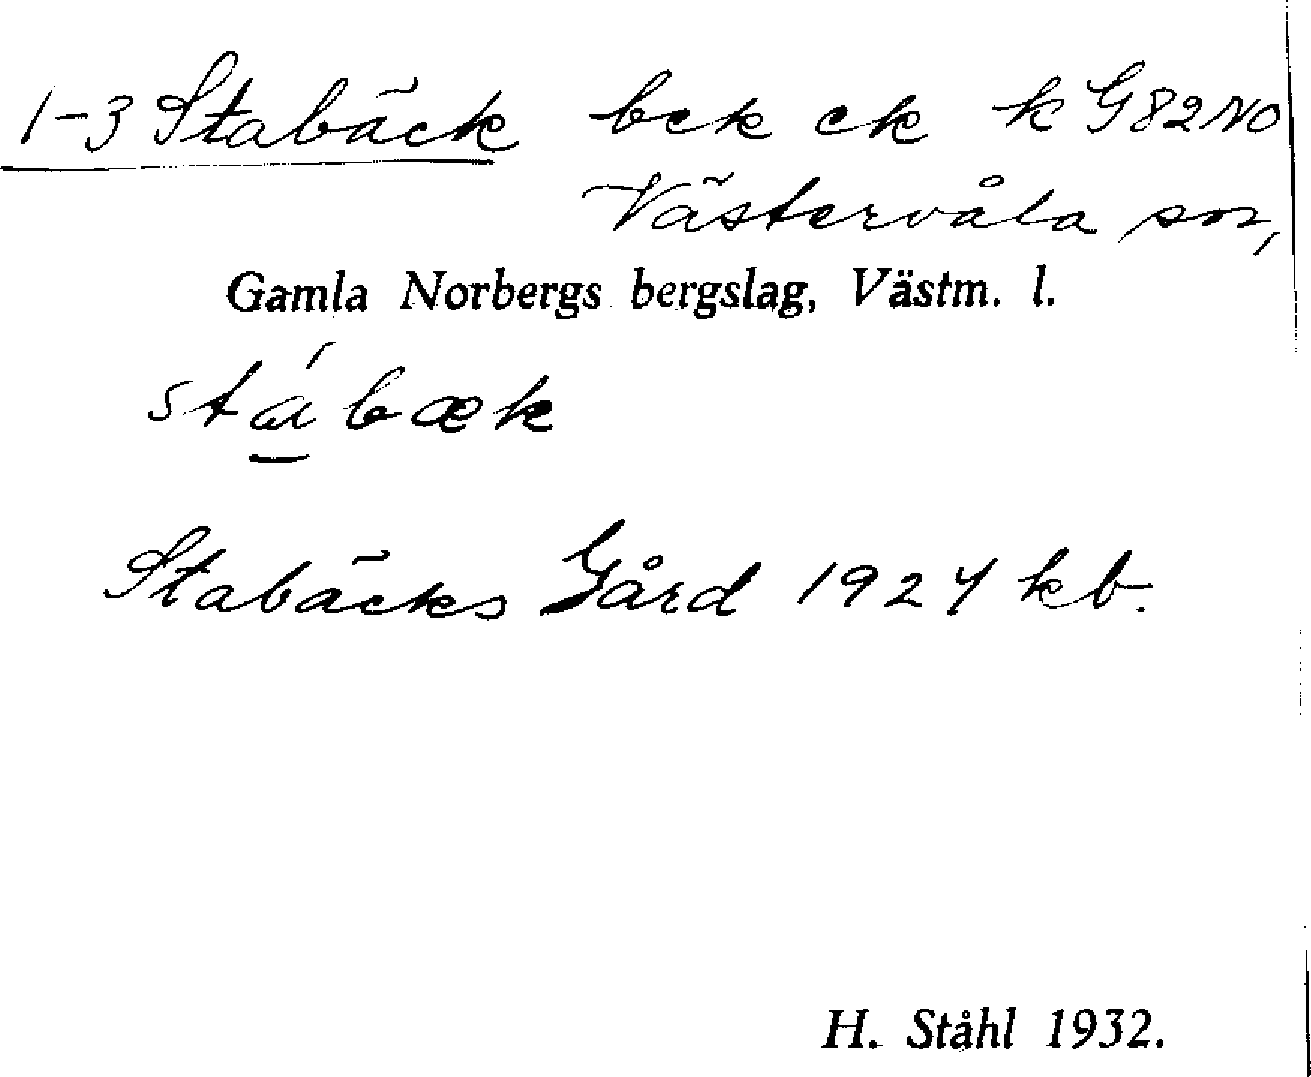 1-3 Stabäck bek ek k G82NO
Västervåla sn,
Gamla Norbergs bergslag, Västm. l.
stábæk
Stabäcks Gård 1924 kb.
H. Ståhl 1932.